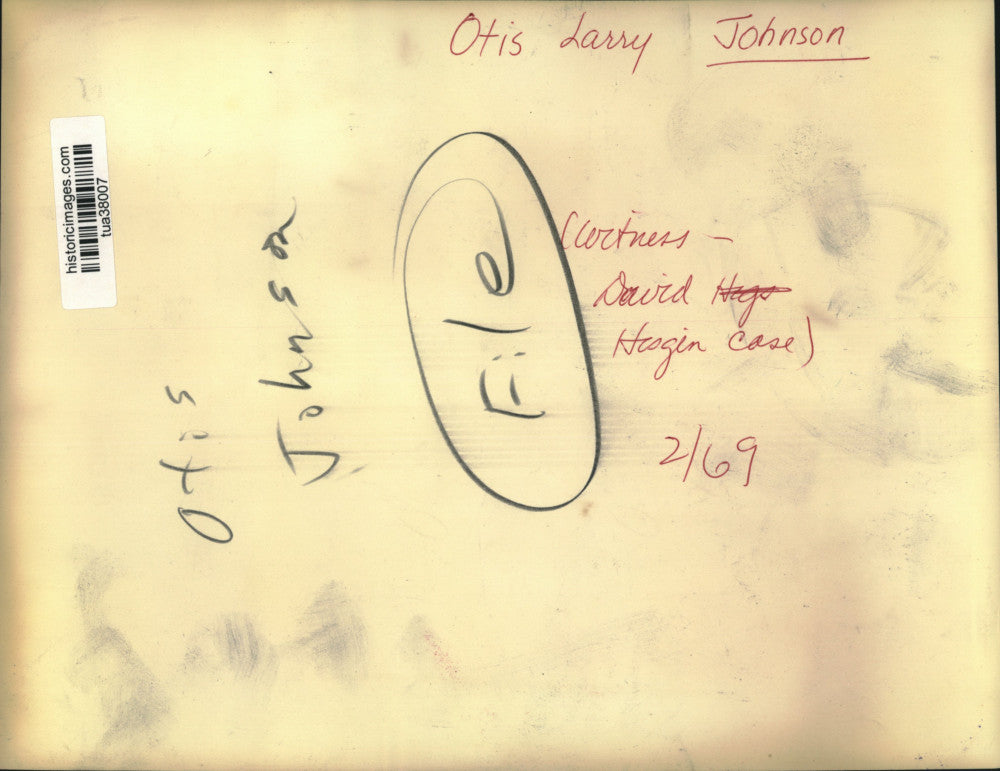 Otis Larry Johnson
historicimages.com
tua38007
Otis
Johnson
File
(Witness -
David Higs
Hisgin case)
2/69